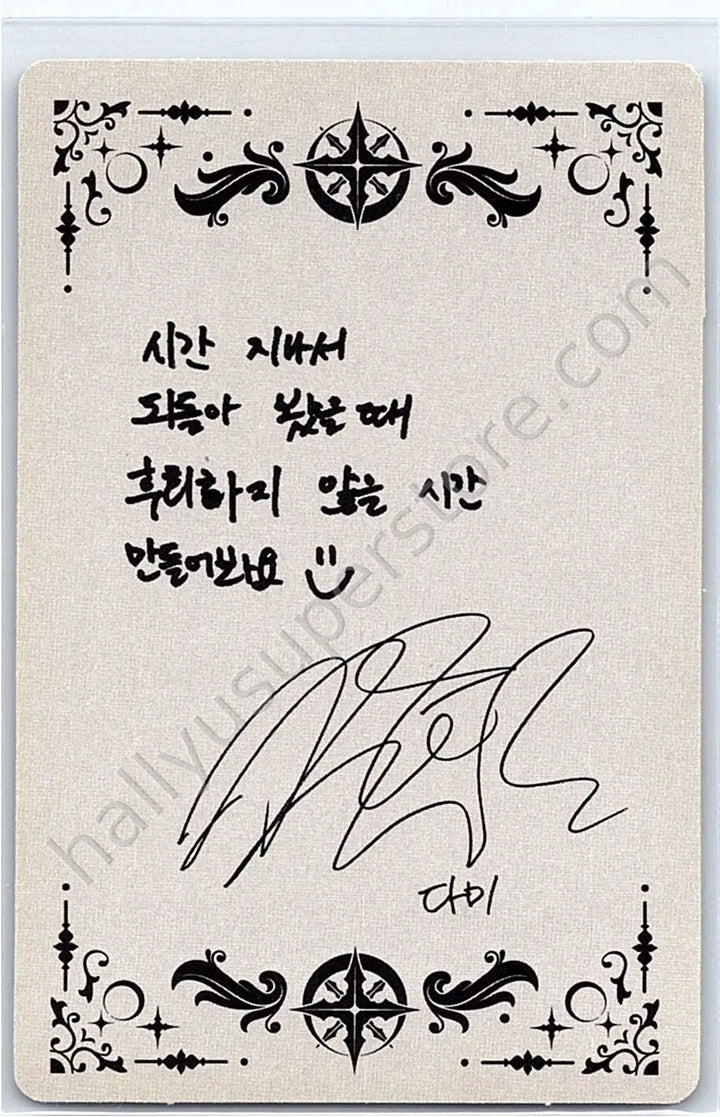 시간 지나서
되돌아 봤을 때
후회하지 않을 시간
만들어봐요 :)
다미
hallyusuperstore.com